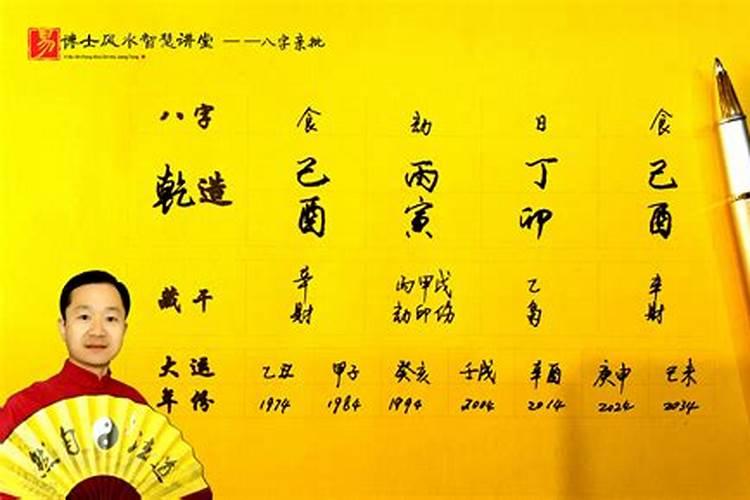 易 谦士风水智慧讲堂 ——八字亲批
八字 食 劫 日 食
乾造 己 丙 丁 己
酉 寅 卯 酉
藏干 辛 丙甲戊 乙 辛
财 劫印伤 枭 财
大运 乙丑 甲子 癸亥 壬戌 辛酉 庚申 己未
年份 1974 1984 1994 2004 2014 2024 2034
然自 法道